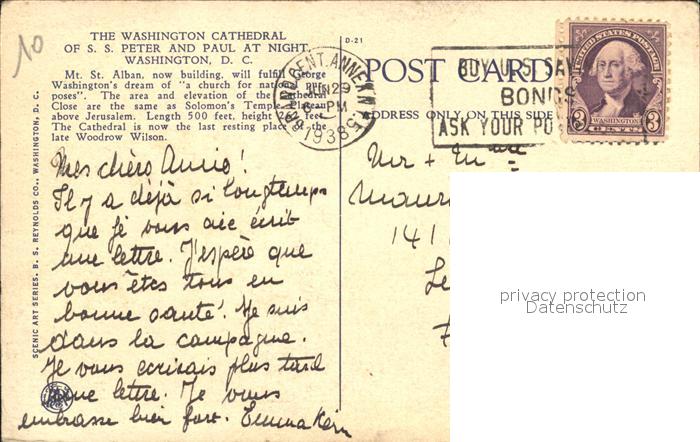 10
THE WASHINGTON CATHEDRAL
OF S. S. PETER AND PAUL AT NIGHT,
WASHINGTON, D. C.
Mt. St. Alban, now building, will fulfill George
Washington's dream of "a church for national pur-
poses". The area and elevation of the Cathedral
Close are the same as Solomon's Temple Plateau
above Jerusalem. Length 500 feet, height 26 feet.
The Cathedral is now the last resting place of the
late Woodrow Wilson.
SCENIC ART SERIES. B. S. REYNOLDS CO., WASHINGTON, D. C.
Mes chèrs Amis!
Il y a déjà si longtemps
que je vous aie écrit
une lettre. J'espère que
vous êtes tous en
bonne santé. Je suis
dans la campagne.
Je vous ecrirais plus tard
une lettre. Je vous
embrasse bien fort. Emma Kern
D-21
POST CARD
ADDRESS ONLY ON THIS SIDE
CENT. ANNEX N.Y.
JUN 29
6 PM
1938
BUY U.S. SAV
BONDS
ASK YOUR PO
UNITED STATES POSTAGE
3 WASHINGTON 3
CENTS
Mr + Mme
Maur
141
Le
privacy protection
Datenschutz